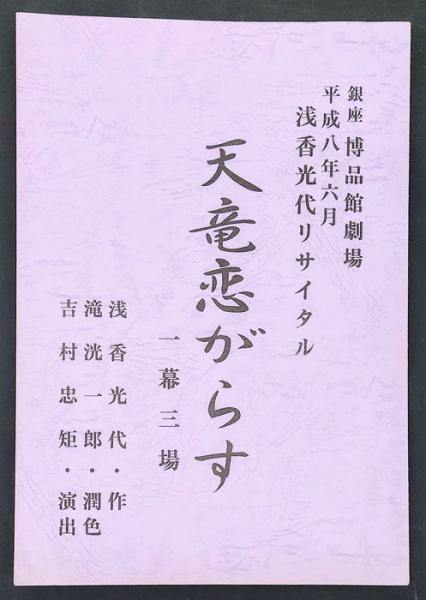 銀座 博品館劇場
平成八年六月
浅香光代リサイタル
天竜恋がらす
一幕三場
浅香光代・作
滝洸一郎・潤色
吉村忠矩・演出